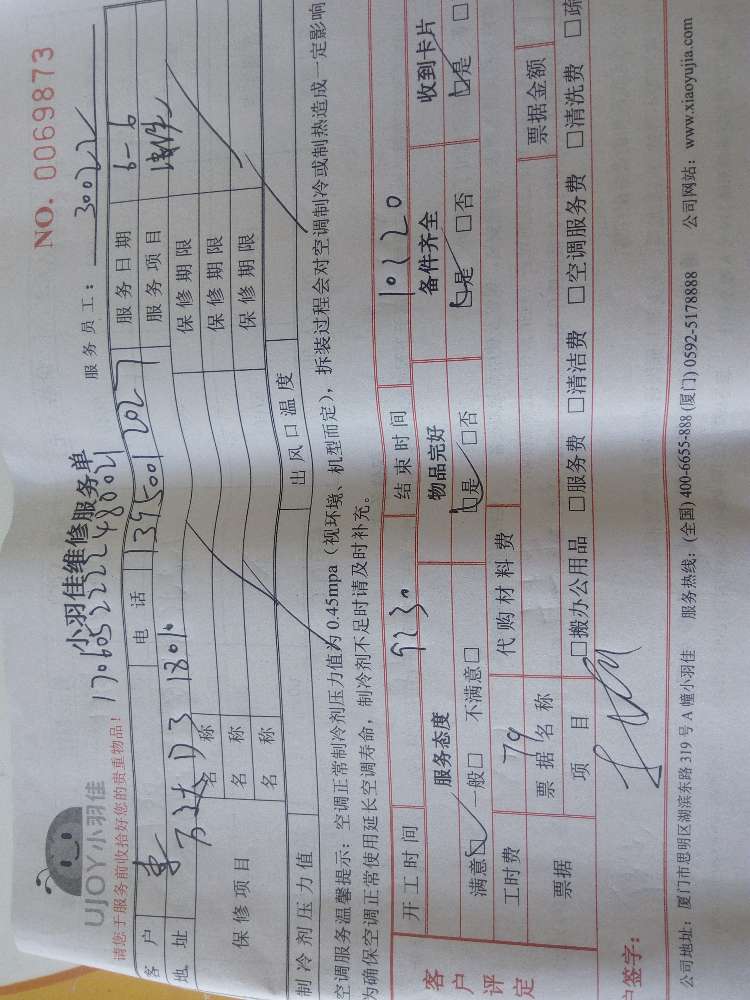 NO. 0069873
UJOY小羽佳
小羽佳维修服务单
请您于服务前收拾好您的贵重物品!
服务员工: 30022
客户 电话 13950012027 服务日期 6-6
地址 万达D3 1801 服务项目
保修项目 名称 保修期限
名称 保修期限
名称 保修期限
制冷剂压力值 出风口温度
空调服务温馨提示: 空调正常制冷剂压力值为0.45mpa(视环境、机型而定), 拆装过程会对空调制冷或制热造成一定影响
为确保空调正常使用延长空调寿命, 制冷剂不足时请及时补充。
开工时间 9230 结束时间 10220
客户评定 服务态度 物品完好 备件齐全 收到卡片
满意□ 一般□ 不满意□ □是 □否 □是 □否 □是 □
工时费 79 代购材料费
票据 票据名称 票据金额
项目 □搬办公用品 □服务费 □清洁费 □空调服务费 □清洗费 □疏
户签字:
公司地址: 厦门市思明区湖滨东路319号A幢小羽佳 服务热线: (全国) 400-6655-888 (厦门) 0592-5178888 公司网站: www.xiaoyujia.com